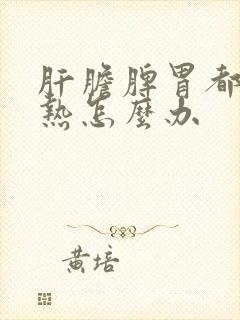 肝膽脾胃都
熱怎麼办
黃培